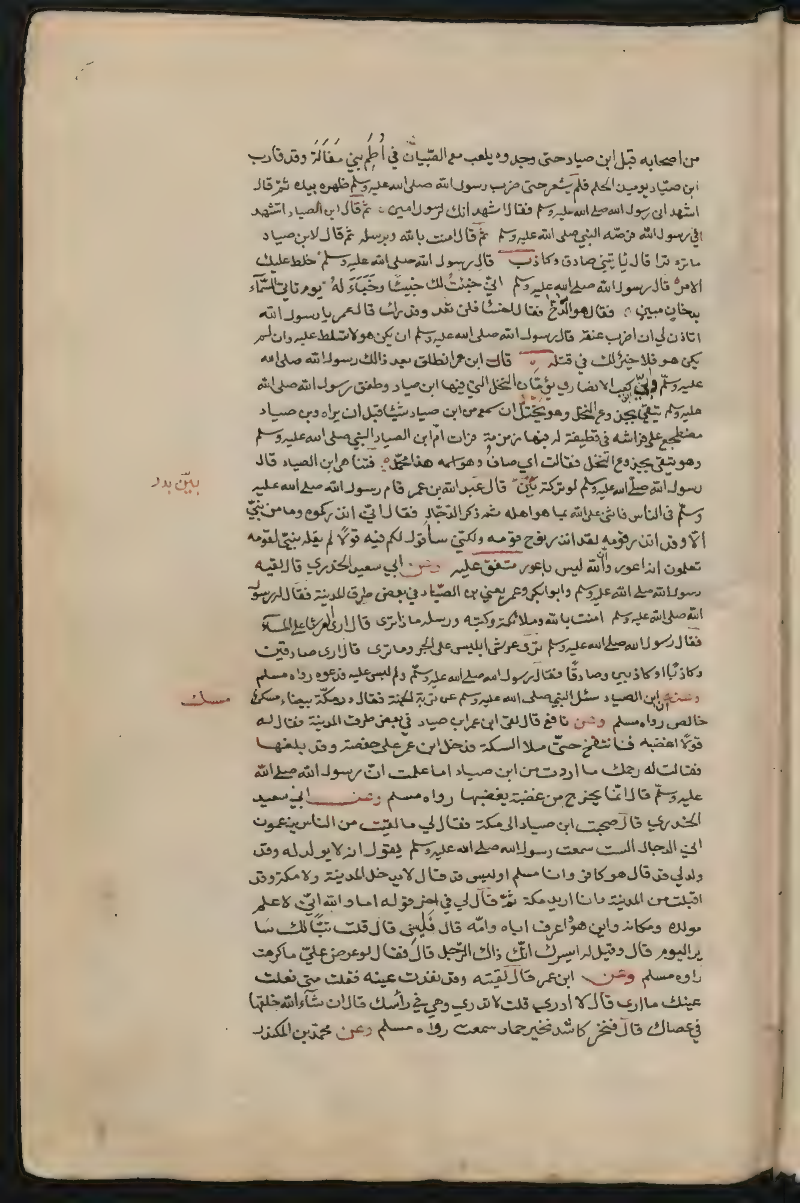 من اصحابه قبل ابن صياد حتى وجدوه يلعب مع الصّبيان في أُطُمِ بني مَغَالَةَ وقد قارب
ابن صيّاد يومئذ الحلم فلم يشعر حتى ضرب رسول الله صلى الله عليه وسلم ظهره بيده ثم قال
اتشهد اني رسول الله صلى الله عليه وسلم فقال اشهد انك رسول اميين ثم قال ابن الصياد اتشهد
اني رسول الله فرصّه النبي صلى الله عليه وسلم ثم قال امنت بالله وبرسله ثم قال لابن صياد
ماذا ترا قال يأتيني صادق وكاذب قال رسول الله صلى الله عليه وسلم خلط عليك
الامر قال رسول الله صلى الله عليه وسلم اني خبئت لك خبيئا وخباء له يوم تاتي السّماء
بدخان مبين فقال هو الدّخ فقال اخسأ فلن تعدو قدرك قال عمر يا رسول الله
اتاذن لي ان اضرب عنقه قال رسول الله صلى الله عليه وسلم ان يكن هو لا تسلط عليه وان لم
يكن هو فلا خير لك في قتله قال ابن عمر انطلق بعد ذالك رسول الله صلى الله
عليه وسلم وابيّ بن كعب الانصاري يؤمّان النخل التي فيها ابن صياد وطفق رسول الله صلى الله
عليه وسلم يتقي بجذوع النخل وهو يختل ان يسمع من ابن صياد شيئا قبل ان يراه وبن صياد
مضطجع على فراشه في قطيفة له فيها زمزمة فرات امّ ابن الصياد النبي صلى الله عليه وسلم
وهو يتقي بجذوع النخل فقالت اي صاف وهو اسمه هذا محمّد فتناهى ابن الصياد قال
رسول الله صلى الله عليه وسلم لو تركته بيّن قال عبد الله بن عمر قام رسول الله صلى الله عليه
وسلم في الناس فاثنى على الله بما هو اهله ثم ذكر الدّجال فقال انّي انذركموه وما من نبيّ
الا وقد انذر قومه لقد انذر نوح قومه ولكنّي سأقول لكم فيه قولًا لم يقله نبيّ لقومه
تعلمون انه اعور وأن الله ليس باعور متفق عليه وعن ابي سعيد الخدري قال لقيه
رسول الله صلى الله عليه وسلم وابو بكر وعمر يعني بن الصّياد في بعض طرق المدينة فقال له رسول
الله صلى الله عليه وسلم امنت بالله وملائكته وكتبه ورسله ماذا ترى قال ارى عرشا على الماء
فقال رسول الله صلى الله عليه وسلم ترى عرش ابليس على البحر وما ترى قال ارى صادقين
وكاذبًا او كاذبين وصادقًا فقال رسول الله صلى الله عليه وسلم لبس عليه فدعوه رواه مسلم
وعنه ان ابن الصياد سئل النبي صلى الله عليه وسلم عن تربة الجنة فقال درمكة بيضاء مسك
خالص رواه مسلم وعن نافع قال لقي ابن عمر ابن صياد في بعض طرق المدينة فقال له
قولًا اغضبه فانتفخ حتّى ملأ السكة فدخل ابن عمر على حفصة وقد بلغها
فقالت له رحمك ما اردت من ابن صياد اما علمت انّ رسول الله صلى الله
عليه وسلم قال انّما يخرج من غضبة يغضبها رواه مسلم وعن ابي سعيد
الخدري قال صحبت ابن صياد الى مكة فقال لي ما لقيت من الناس يزعمون
اني الدجال الست سمعت رسول الله صلى الله عليه وسلم يقول انه لا يولد له وقد
ولد لي قد قال هو كافر وانا مسلم اوليس قد قال لا يدخل المدينة ولا مكة وقد
اقبلت من المدينة وانا اريد مكة ثمّ قال لي في اخر قوله اما والله انّي لاعلم
مولده ومكانه واين هو واعرف اباه وامّه قال فلبسني قال قلت تبّا لك سا
ير اليوم قال وقيل له ايسرك انّك ذاك الرّجل قال فقال لو عرض عليّ ما كرهت
راوه مسلم وعن ابن عمر قال لقيته وقد نفذت عينه فقلت متى فعلت
عينك ما ارى قال لا ادري قلت لا تدري وهي في رأسك قال ان شآء الله خلقها
في عصاك قال فنخر كاشد نخير حمار سمعت رواه مسلم وعن محمّد بن المنكدر
بيّن بدر
مسك